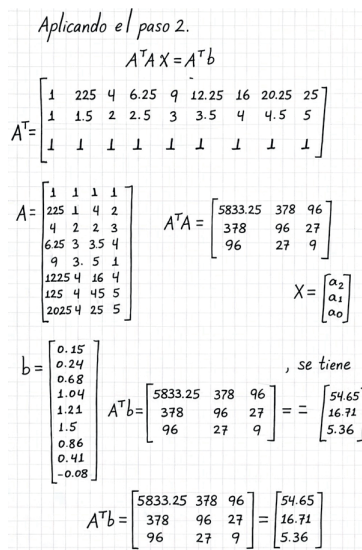 Aplicando el paso 2.
AᵀA X = Aᵀb
Aᵀ = [1 225 4 6.25 9 12.25 16 20.25 25
1 1.5 2 2.5 3 3.5 4 4.5 5
1 1 1 1 1 1 1 1 1]
A = [1 1 1 1
225 1 4 2
4 2 2 3
6.25 3 3.5 4
9 3. 5 1
1225 4 16 4
125 4 45 5
2025 4 25 5]
AᵀA = [5833.25 378 96
378 96 27
96 27 9]
X = [a₂
a₁
a₀]
b = [0.15
0.24
0.68
1.04
1.21
1.5
0.86
0.41
-0.08]
, se tiene
Aᵀb = [5833.25 378 96
378 96 27
96 27 9] = = [54.65
16.71
5.36]
Aᵀb = [5833.25 378 96
378 96 27
96 27 9] = [54.65
16.71
5.36]